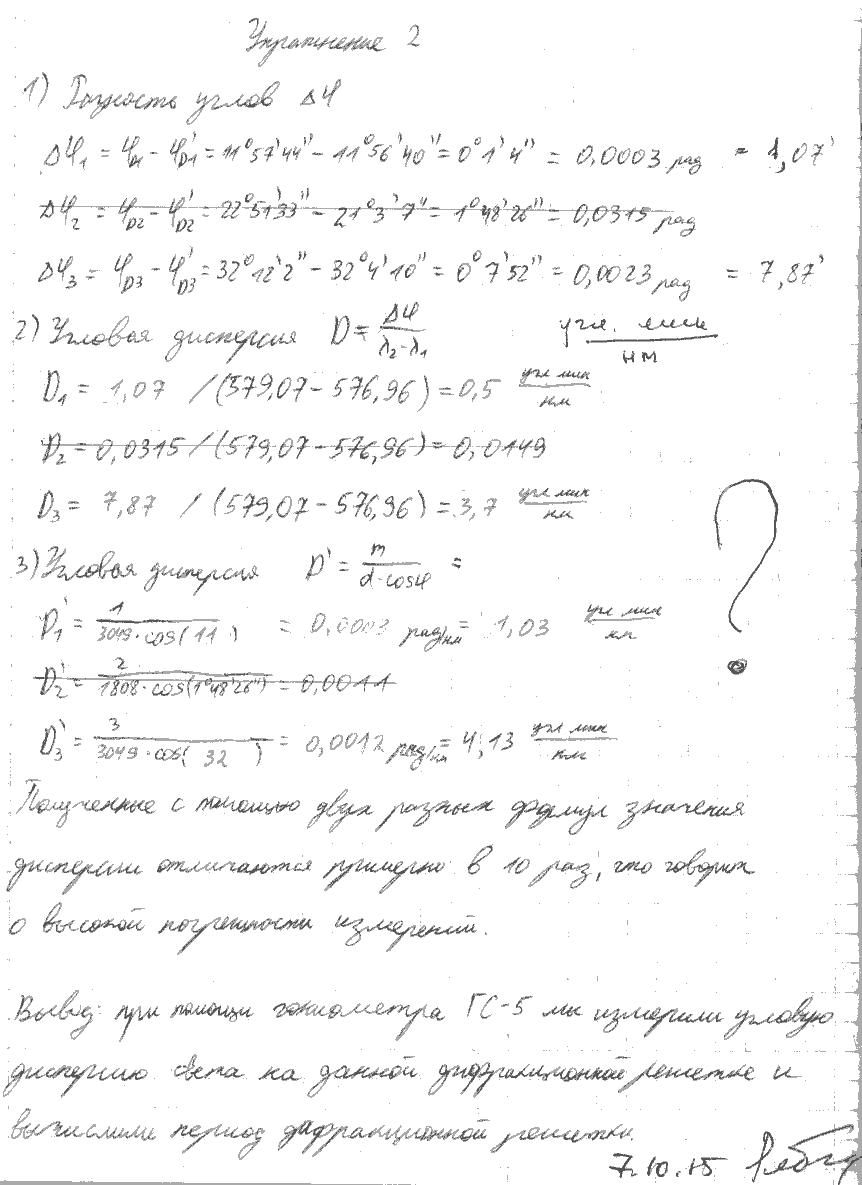 Упражнение 2
1) Разность углов Δφ
Δφ₁ = φ_D1 - φ'_D1 = 11°57'44'' - 11°56'40'' = 0°1'4'' = 0,0003 рад = 1,07'
Δφ₂ = φ_D2 - φ'_D2 = 22°51'33'' - 21°3'7'' = 1°48'26'' = 0,0315 рад
Δφ₃ = φ_D3 - φ'_D3 = 32°12'2'' - 32°4'10'' = 0°7'52'' = 0,0023 рад = 7,87'
2) Угловая дисперсия D = Δφ/(λ₂-λ₁) угл. мин/нм
D₁ = 1,07 /(579,07 - 576,96) = 0,5 угл мин/нм
D₂ = 0,0315/(579,07 - 576,96) = 0,0149
D₃ = 7,87 /(579,07 - 576,96) = 3,7 угл мин/нм
3) Угловая дисперсия D' = m/(d·cosφ) =
D₁' = 1/(3049·cos(11)) = 0,0003 рад/нм = 1,03 угл мин/нм
D₂' = 2/(1808·cos(1°48'26'')) = 0,0011
D₃' = 3/(3049·cos(32)) = 0,0012 рад/нм = 4,13 угл мин/нм
?
Полученные с помощью двух разных формул значения
дисперсии отличаются примерно в 10 раз, что говорит
о высокой погрешности измерений.
Вывод: при помощи гониометра ГС-5 мы измерили угловую
дисперсию света на данной дифракционной решетке и
вычислили период дифракционной решетки.
7.10.15